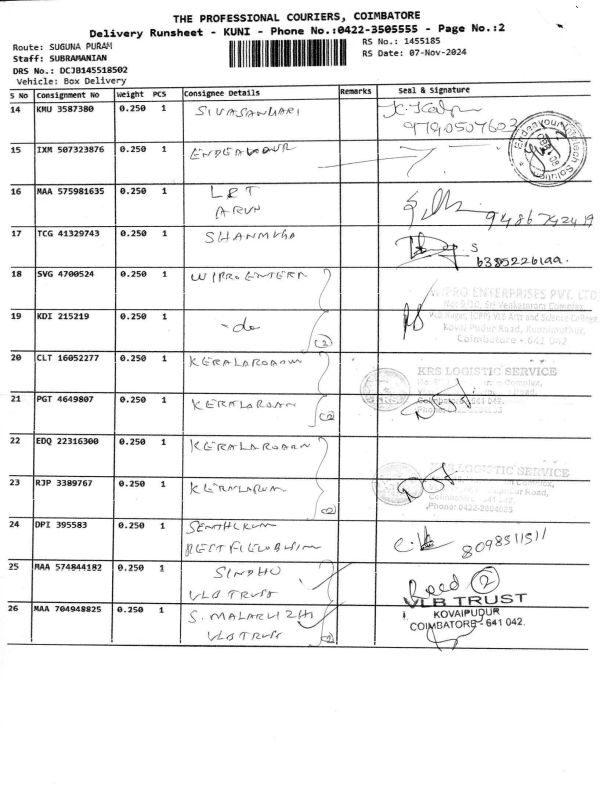 THE PROFESSIONAL COURIERS, COIMBATORE
Delivery Runsheet - KUNI - Phone No.:0422-3505555 - Page No.:2
Route: SUGUNA PURAM
RS No.: 1455185
Staff: SUBRAMANIAN
RS Date: 07-Nov-2024
DRS No.: DCJB145518502
Vehicle: Box Delivery
S No Consignment No Weight PCS Consignee Details Remarks Seal & Signature
14 KMU 3587380 0.250 1 SIVASANKARI
9790507603
15 IXM 507323876 0.250 1 ENDEAVOUR
16 MAA 575981635 0.250 1 L&T
ARUN
9486742419
17 TCG 41329743 0.250 1 SHANMUGA
6385226199.
18 SVG 4700524 0.250 1 WIPRO ENTERP
WIPRO ENTERPRISES PVT. LTD
No: 9/10, Sri Venkataram Complex,
VLB Nagar, (OPP) VLB Arts and Science College
19 KDI 215219 0.250 1 -do (2)
Kovai Pudur Road, Kuniamuthur,
Coimbatore - 641 042
20 CLT 16052277 0.250 1 KERALAROADW
KRS LOGISTIC SERVICE
21 PGT 4649807 0.250 1 KERALAROAD (2)
Coimbatore - 641 042.
22 EDQ 22316300 0.250 1 KERALAROADW
KRS LOGISTIC SERVICE
23 RJP 3389767 0.250 1 KERALAROAD (2)
Phone: 0422-2604085
24 DPI 395583 0.250 1 SENTHILKUM
8098311511
25 MAA 574844182 0.250 1 SINDHU
VLB TRUST
Recd (2)
VLB TRUST
26 MAA 704948825 0.250 1 S. MALARVIZHI
VLB TRUST (2)
KOVAIPUDUR
COIMBATORE - 641 042.